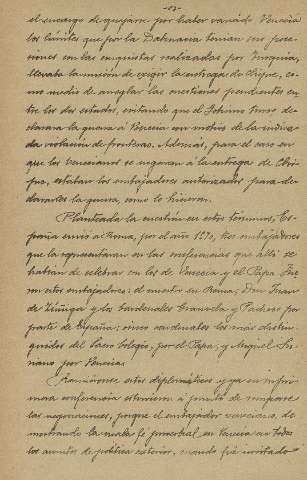 -83-
el encargo de quejarse por haber variado Venecia
los límites que por la Dalmacia tenían sus pose-
siones con las conquistas realizadas por Turquía,
llevaba la misión de exigir la entrega de Chipre, co-
mo medio de arreglar las cuestiones pendientes en-
tre los dos estados, evitando que el Sultán turco de-
clarara la guerra á Venecia con motivo de la indica-
da violación de fronteras. Además, para el caso en
que los venecianos se negaran á la entrega de Chi-
pre, estaban los embajadores autorizados para de-
clararles la guerra, como lo hicieron.
Planteada la cuestión en estos términos, Es-
paña envió a Roma, por el año 1570, tres embajadores
que la representaran en las conferencias que allí se
habían de celebrar con los de Venecia y el Papa. Fue-
ron estos embajadores: el nuestro en Roma, Don Juan
de Zúñiga y los Cardenales Granvela y Pacheco por
parte de España; cinco cardenales los más distin-
guidos del Sacro Colegio, por el Papa; y Miguel Su-
riano por Venecia.
Reuniéronse estos diplomáticos y ya en su pri-
mera conferencia estuvieron á punto de romperse
las negociaciones, porque el embajador veneciano, de-
mostrando la mala fé proverbial en Venecia en todos
los asuntos de política exterior, cuando fué invitado